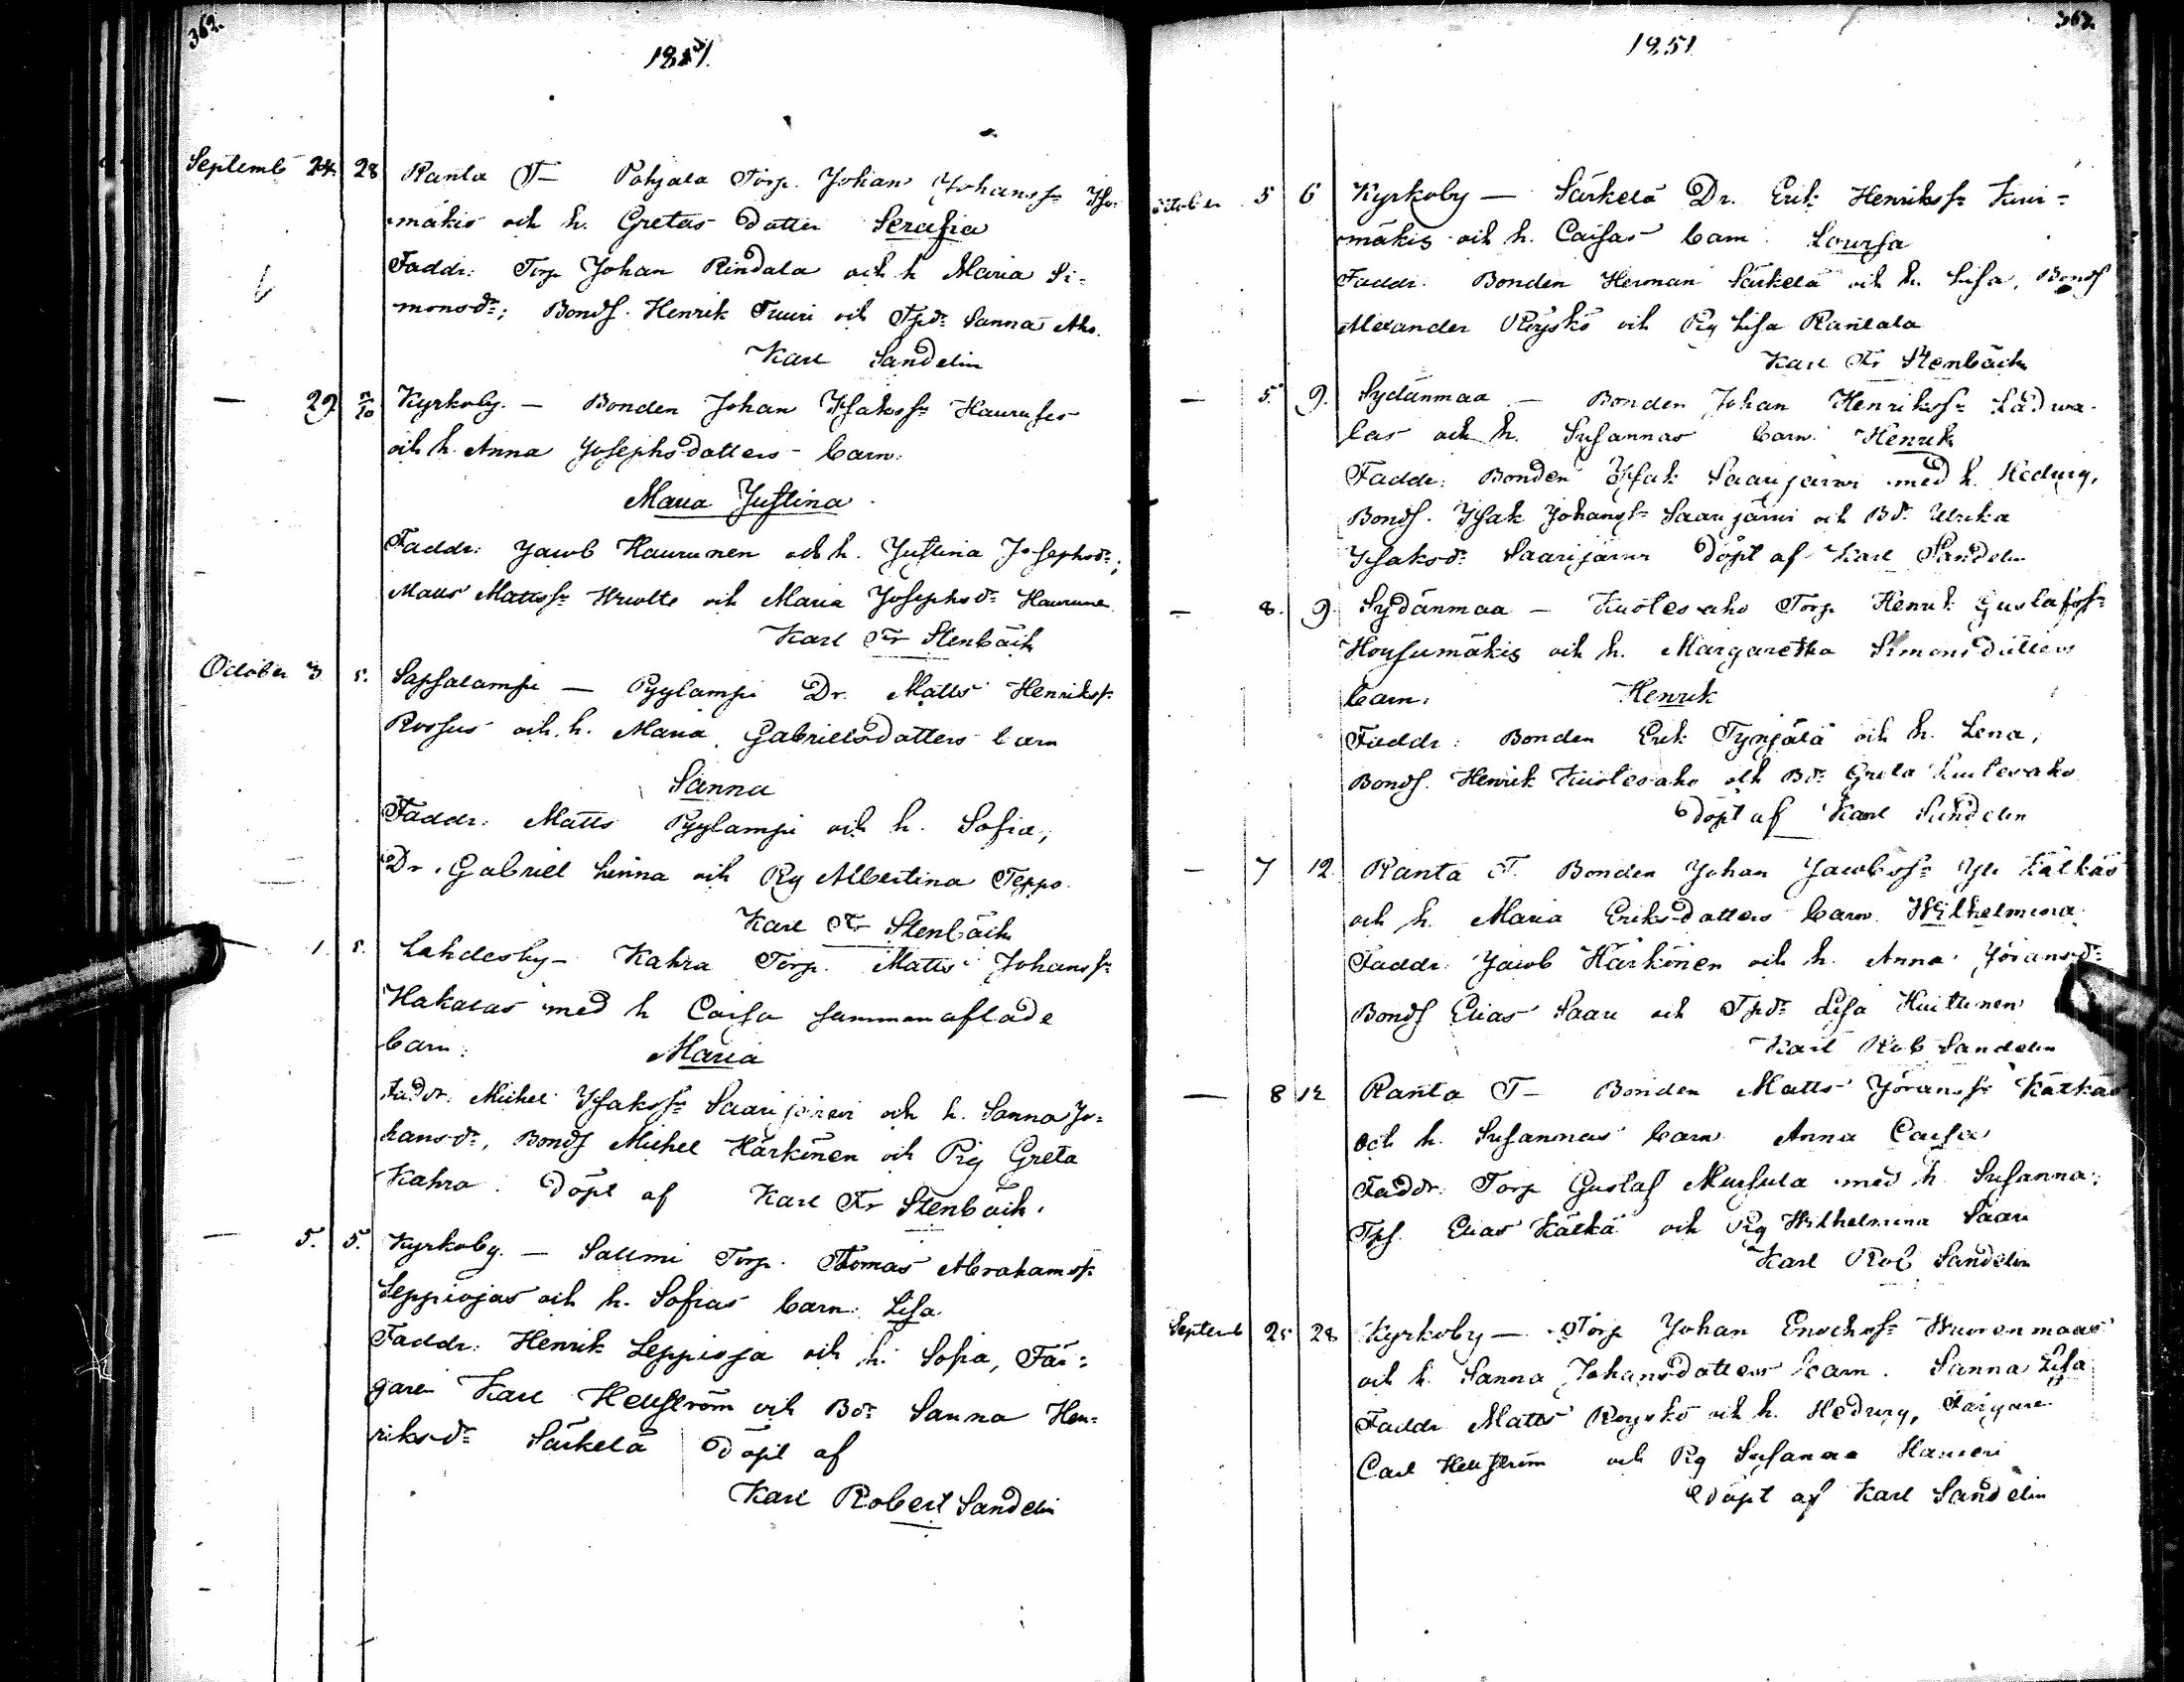 362.
1851.
Septemb 24. 28 Ranta T— Pohjala Torp. Johan Johanss:n Iso-
mäkis och h. Gretas dotter Serafia
Faddr: Torp Johan Rindala och h Maria Si-
monsd:r; Bonds. Henrik Tuuri och Tpd:r Sanna Aho.
Karl Sandelin
— 29. 2/10 Kyrkoby. — Bonden Johan Isakss:n Hauruses
och h. Anna Josephsdotters barn:
Maria Justina
Faddr: Jacob Haurunen och h. Justina Josephsd:r;
Matts Mattss:n och Maria Josephsd:r Haurunen
Karl Fr Stenbäck
October 3 5. Sapsalampi — Pyylampi Dr. Matts Henrikss:n
Rossus och h. Maria Gabrielsdotters barn
Sanna
Faddr: Matts Pyylampi och h. Sofia,
Dr. Gabriel Linna och Pig Albertina Teppo.
Karl Fr Stenbäck
1. 5. Lahdesby — Kahra Torp. Matts Johanss:n
Hakalas med h Caisa sammanaflade
barn: Maria
Faddr. Michel Isakss:n Saarijärvi och h. Sanna Jo-
hansd:r, Bonds Michel Härkönen och Pig Greta
Kahra. Döpt af Karl Fr Stenbäck.
— 5. 5. Kyrkoby. — Sallmi Torp. Thomas Abrahamss:n
Leppiojas och h. Sofias barn: Lisa.
Faddr: Henrik Leppioja och h. Sofia, Fär-
gare Karl Hellström och Bd:r Sanna Hen-
riksd:r Särkelä Döpt af
Karl Robert Sandelin
363.
1851
October 5 6 Kyrkoby — Särkelä Dr. Erik Henrikss:n Kivi-
mäkis och h. Caisas barn: Lovisa
Faddr. Bonden Herman Särkelä och h. Lisa, Bonds
Alexander Röyskö och Pig Lisa Rantala
Karl Fr Stenbäck
— 5. 9. Sydänmaa — Bonden Johan Henrikss:n Ladwa-
las och h. Susannas barn: Henrik
Faddr: Bonden Isak Saarijärvi med h. Hedvig,
Bonds. Isak Johanss:n Saarijärvi och Bd:r Ulrika
Isaksd:r Saarijärvi Döpt af Karl Sandelin
— 8. 9. Sydänmaa — Kuolesaho Torp Henrik Gustafss:n
Houhumäkis och h. Margaretha Simonsdotters
barn: Henrik
Faddr: Bonden Erik Tynjälä och h. Lena,
Bonds. Henrik Kuolesaho och Bd:r Greta Kuolesaho
Döpt af Karl Sandelin
— 7 12. Ranta T. Bonden Johan Jacobss:n Yli Kätkäs
och h. Maria Eriksdotters barn Wilhelmina
Faddr. Jacob Härkönen och h. Anna Jöransd:r
Bonds Elias Saari och Tpd:r Lisa Huittinen
Karl Rob Sandelin
— 8 12 Ranta T— Bonden Matts Jöranss:n Kätkäs
och h. Susannas barn Anna Caisa
Faddr. Torp Gustaf med h. Susanna;
Tps. Elias Kätkä och Pig Wilhelmina Saari
Karl Rob Sandelin
Septemb 25 28 Kyrkoby — Torp Johan Enochss:n Wuorenmaas
och h. Sanna Johansdotters barn. Sanna Lisa
Faddr Matts Röyskö och h. Hedvig, Färgare
Carl Hellström och Pig Susanna
Döpt af Karl Sandelin